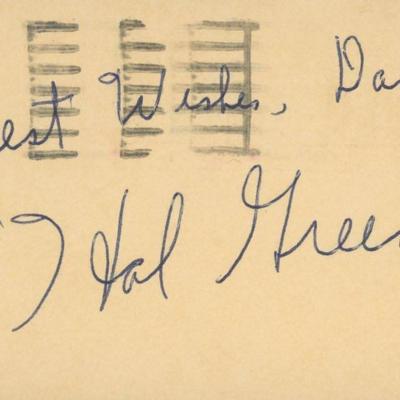 est Wishes, Da
Hal Green